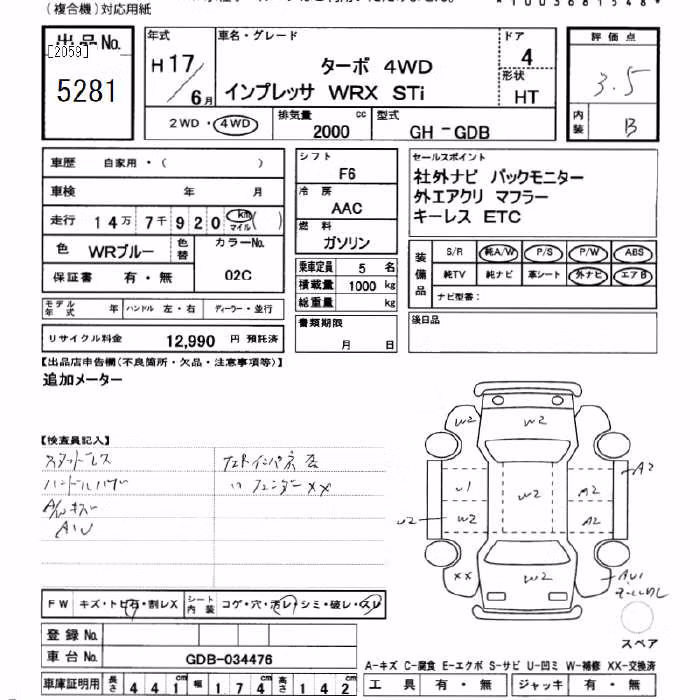 (複合機)対応用紙
出品No.
[2059]
5281
年式
H17/6月
車名・グレード
ターボ 4WD
インプレッサ WRX STi
ドア
4
形状
HT
評価点
3.5
内装
B
2WD・4WD
排気量
2000 cc
型式
GH-GDB
車歴 自家用・( )
車検 年 月
走行 14万7千920 km マイル ( )
色 WRブルー
色替
カラーNo.
02C
保証書 有・無
モデル年式 年 ハンドル 左・右 ディーラー・並行
リサイクル料金 12,990 円 預託済
シフト
F6
冷房
AAC
燃料
ガソリン
乗車定員 5 名
積載量 1000 kg
総重量 kg
書類期限
月 日
セールスポイント
社外ナビ バックモニター
外エアクリ マフラー
キーレス ETC
装備品
S/R 純A/W P/S P/W ABS
純TV 純ナビ 革シート 外ナビ エアB
ナビ型番:
後日品
【出品店申告欄(不良箇所・欠品・注意事項等)】
追加メーター
【検査員記入】
スタッドレス
A/Wキズ
AW
フェンダーXX
W2
W2
U1
W2
W2
A2
A2
A2
U2
XX
W2
AU1
スペア
FW キズ・トビ石・割レX
シート内装 コゲ・穴・汚レ・シミ・破レ・スレ
登録No.
車台No. GDB-034476
車庫証明用 長さ 441cm 幅 174cm 高さ 142cm
A-キズ C-腐食 E-エクボ S-サビ U-凹ミ W-補修 XX-交換済
工具 有・無 ジャッキ 有・無